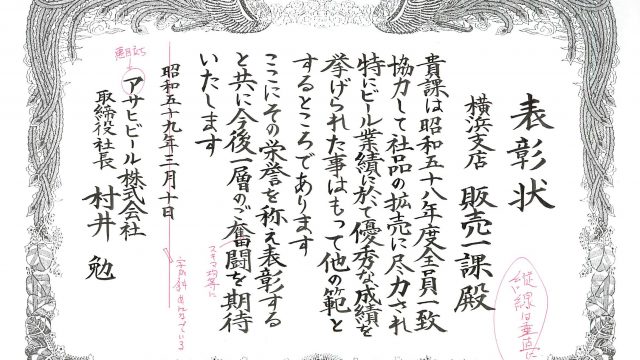 表彰状
横浜支店 販売一課殿
貴課は昭和五十八年度全員一致
協力して社品の拡売に尽力され
特にビール業績に於て優秀な成績を
挙げられた事はもって他の範と
するところであります
ここにその栄誉を称え表彰する
と共に今後一層のご奮闘を期待
いたします
昭和五十九年三月十日
アサヒビール株式会社
取締役社長 村井 勉
縦線は垂直に
スキマ均等に